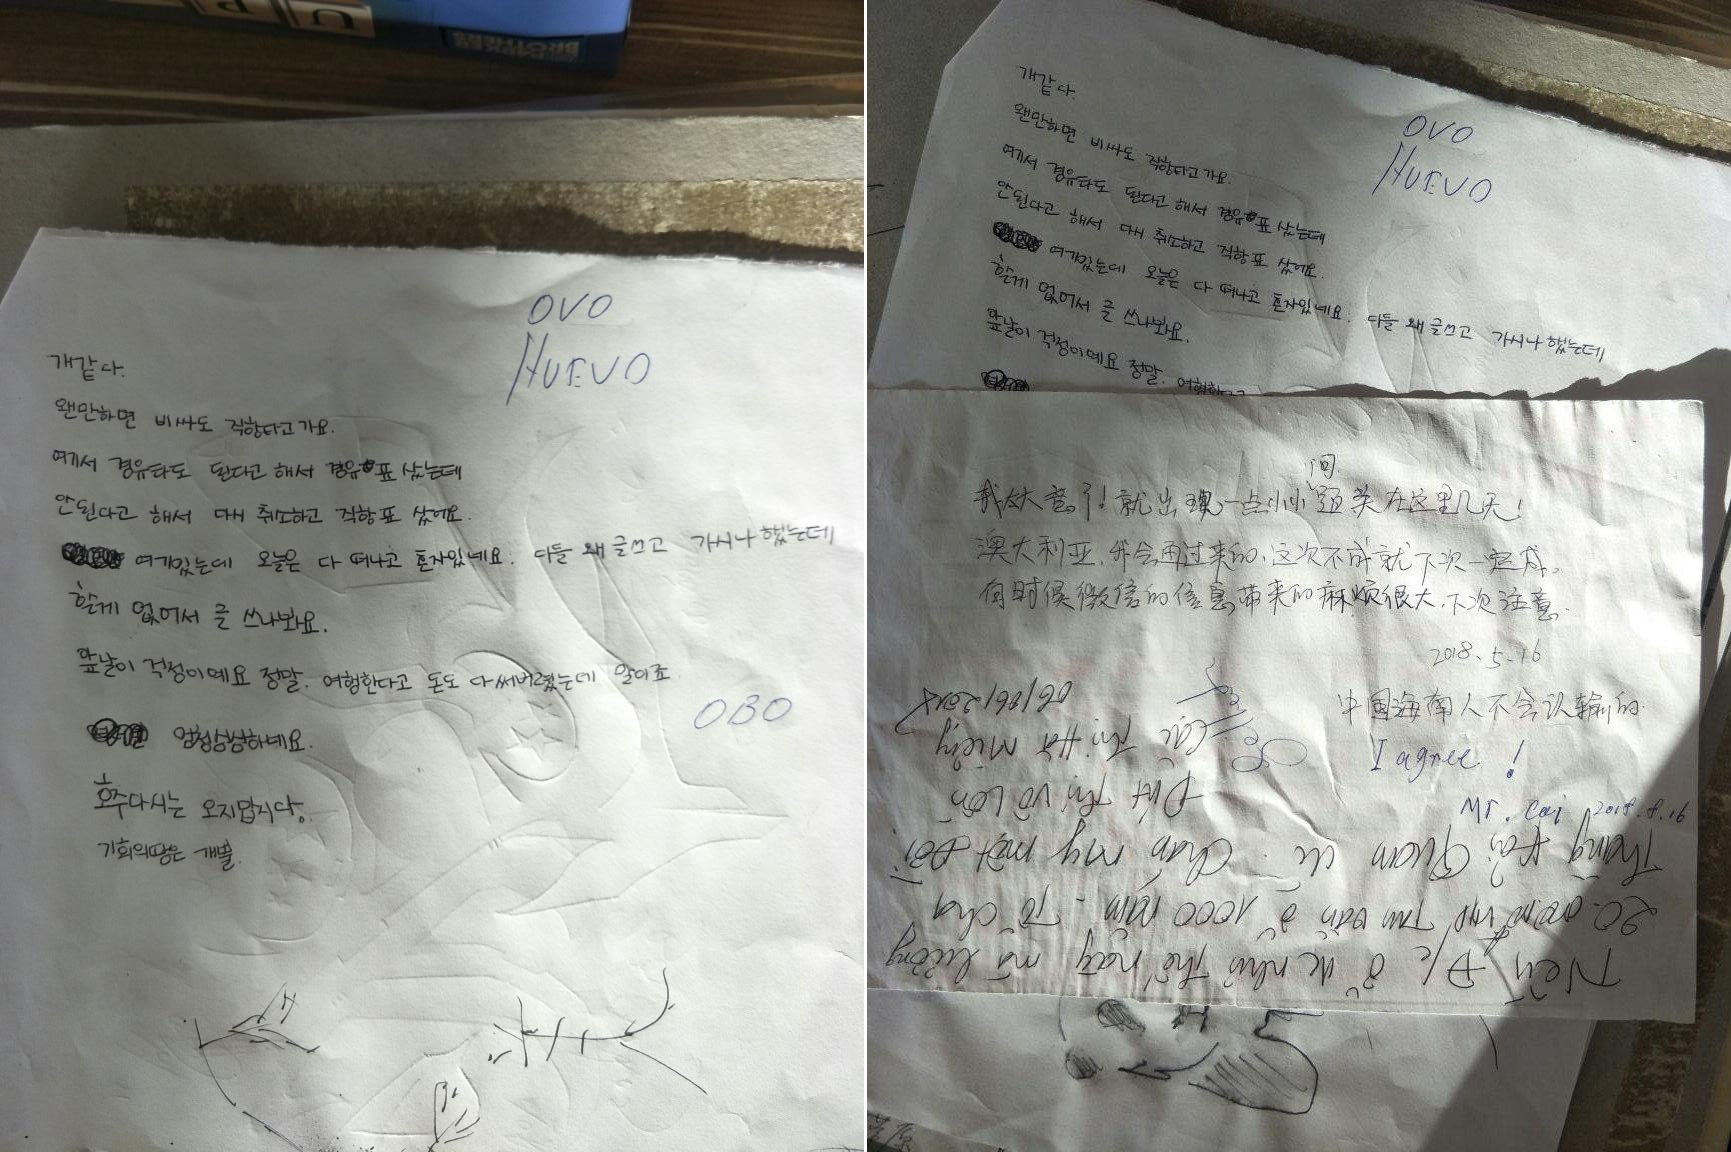 OVO
HUEVO
개같다.
왠만하면 비싸도 직항타고가요.
여기서 경유타도 된다고 해서 경유표 샀는데
안된다고 해서 다시 취소하고 직항표 샀어요.
여기있는데 오늘은 다 떠나고 혼자있네요. 다들 왜 글쓰고 가시나 했는데
할게 없어서 글 쓰나봐요.
앞날이 걱정이예요 정말. 여행한다고 돈도 다써버렸는데 말이죠
OBO
엄청싱싱하네요.
호주다시는 오지맙시당.
기회의땅은 개뿔.
개같다.
왠만하면 비싸도 직항타고가요.
여기서 경유타도 된다고 해서 경유표 샀는데
안된다고 해서 다시 취소하고 직항표 샀어요.
여기있는데 오늘은 다 떠나고 혼자있네요. 다들 왜 글쓰고 가시나 했는데
할게 없어서 글 쓰나봐요.
앞날이 걱정이예요 정말. 여행한다고
OVO
HUEVO
问
我太大意了!就出现一点小小题关在这里几天!
澳大利亚,我会再过来的,这次不成就下次一定成,
有时候微信的信息带来的麻烦很大,下次注意.
2018.5.16
中国海南人不会认输的.
I agree !
Mr. Cai 2018.8.16
Nền Đ/c ở Úc như thế này mà lương
20.000.000 VNĐ Tao vẫn ở 1000 năm - Tổ cha
Thằng Hải Quan Úc. Chán my mệt
06/06/2018